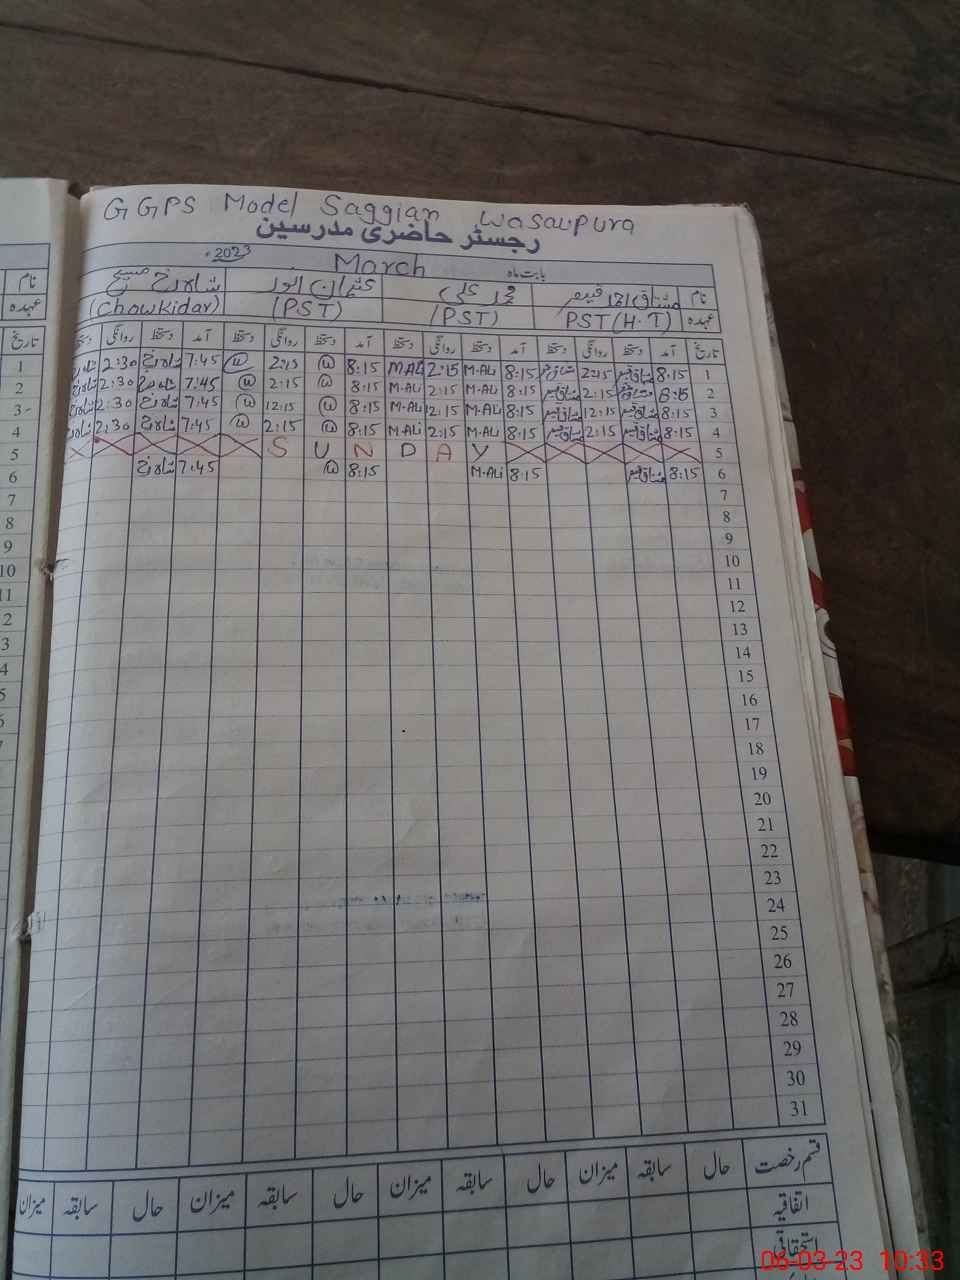 GGPS Model Saggian Wasanpura
رجسٹر حاضری مدرسین
بابت ماہ March 2023
نام مشتاق احمد قیصر محمد علی عثمان انور شاہ رخ مسیح
عہدہ PST (H.T) (PST) (PST) (Chowkidar)
تاریخ آمد دستخط روانگی دستخط آمد دستخط روانگی دستخط آمد دستخط روانگی دستخط آمد دستخط روانگی دستخط
1 8:15 2:15 8:15 M-Ali 2:15 M-Ali 8:15 2:15 7:45 شاہ رخ 2:30
2 8:15 2:15 8:15 M-Ali 2:15 M-Ali 8:15 2:15 7:45 شاہ رخ 2:30
3 8:15 12:15 8:15 M-Ali 12:15 M-Ali 8:15 12:15 7:45 شاہ رخ 12:30
4 8:15 2:15 8:15 M-Ali 2:15 M-Ali 8:15 2:15 7:45 شاہ رخ 2:30
5 SUNDAY
6 8:15 8:15 M-Ali 8:15 7:45 شاہ رخ
7
8
9
10
11
12
13
14
15
16
17
18
19
20
21
22
23
24
25
26
27
28
29
30
31
قسم رخصت حال سابقہ میزان حال سابقہ میزان حال سابقہ میزان حال سابقہ میزان
اتفاقیہ
استحقاقی
06-03-23 10:33
نام
عہدہ
تاریخ
1
2
3
4
5
6
7
8
9
10
11